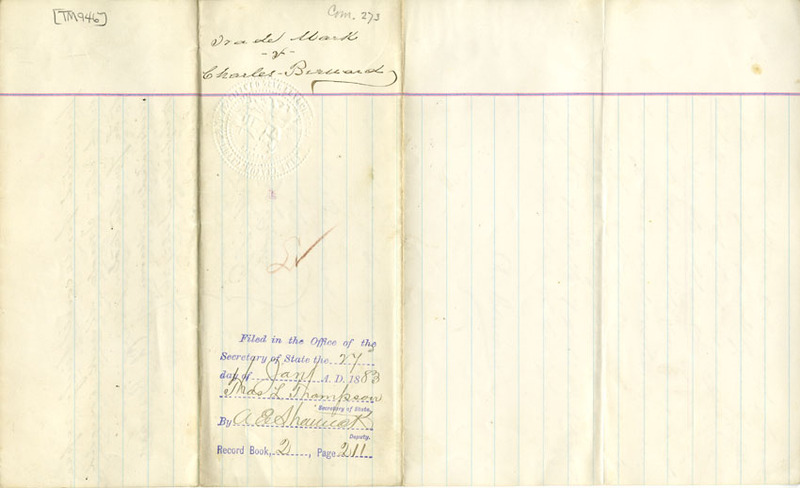 [TM946]
Com. 273
Trade Mark
- of -
Charles Bernard
Filed in the Office of the
Secretary of State the 27
day of Jany A. D. 1883
Thos L Thompson
Secretary of State.
By A E Shattuck
Deputy.
Record Book, 2, Page 211